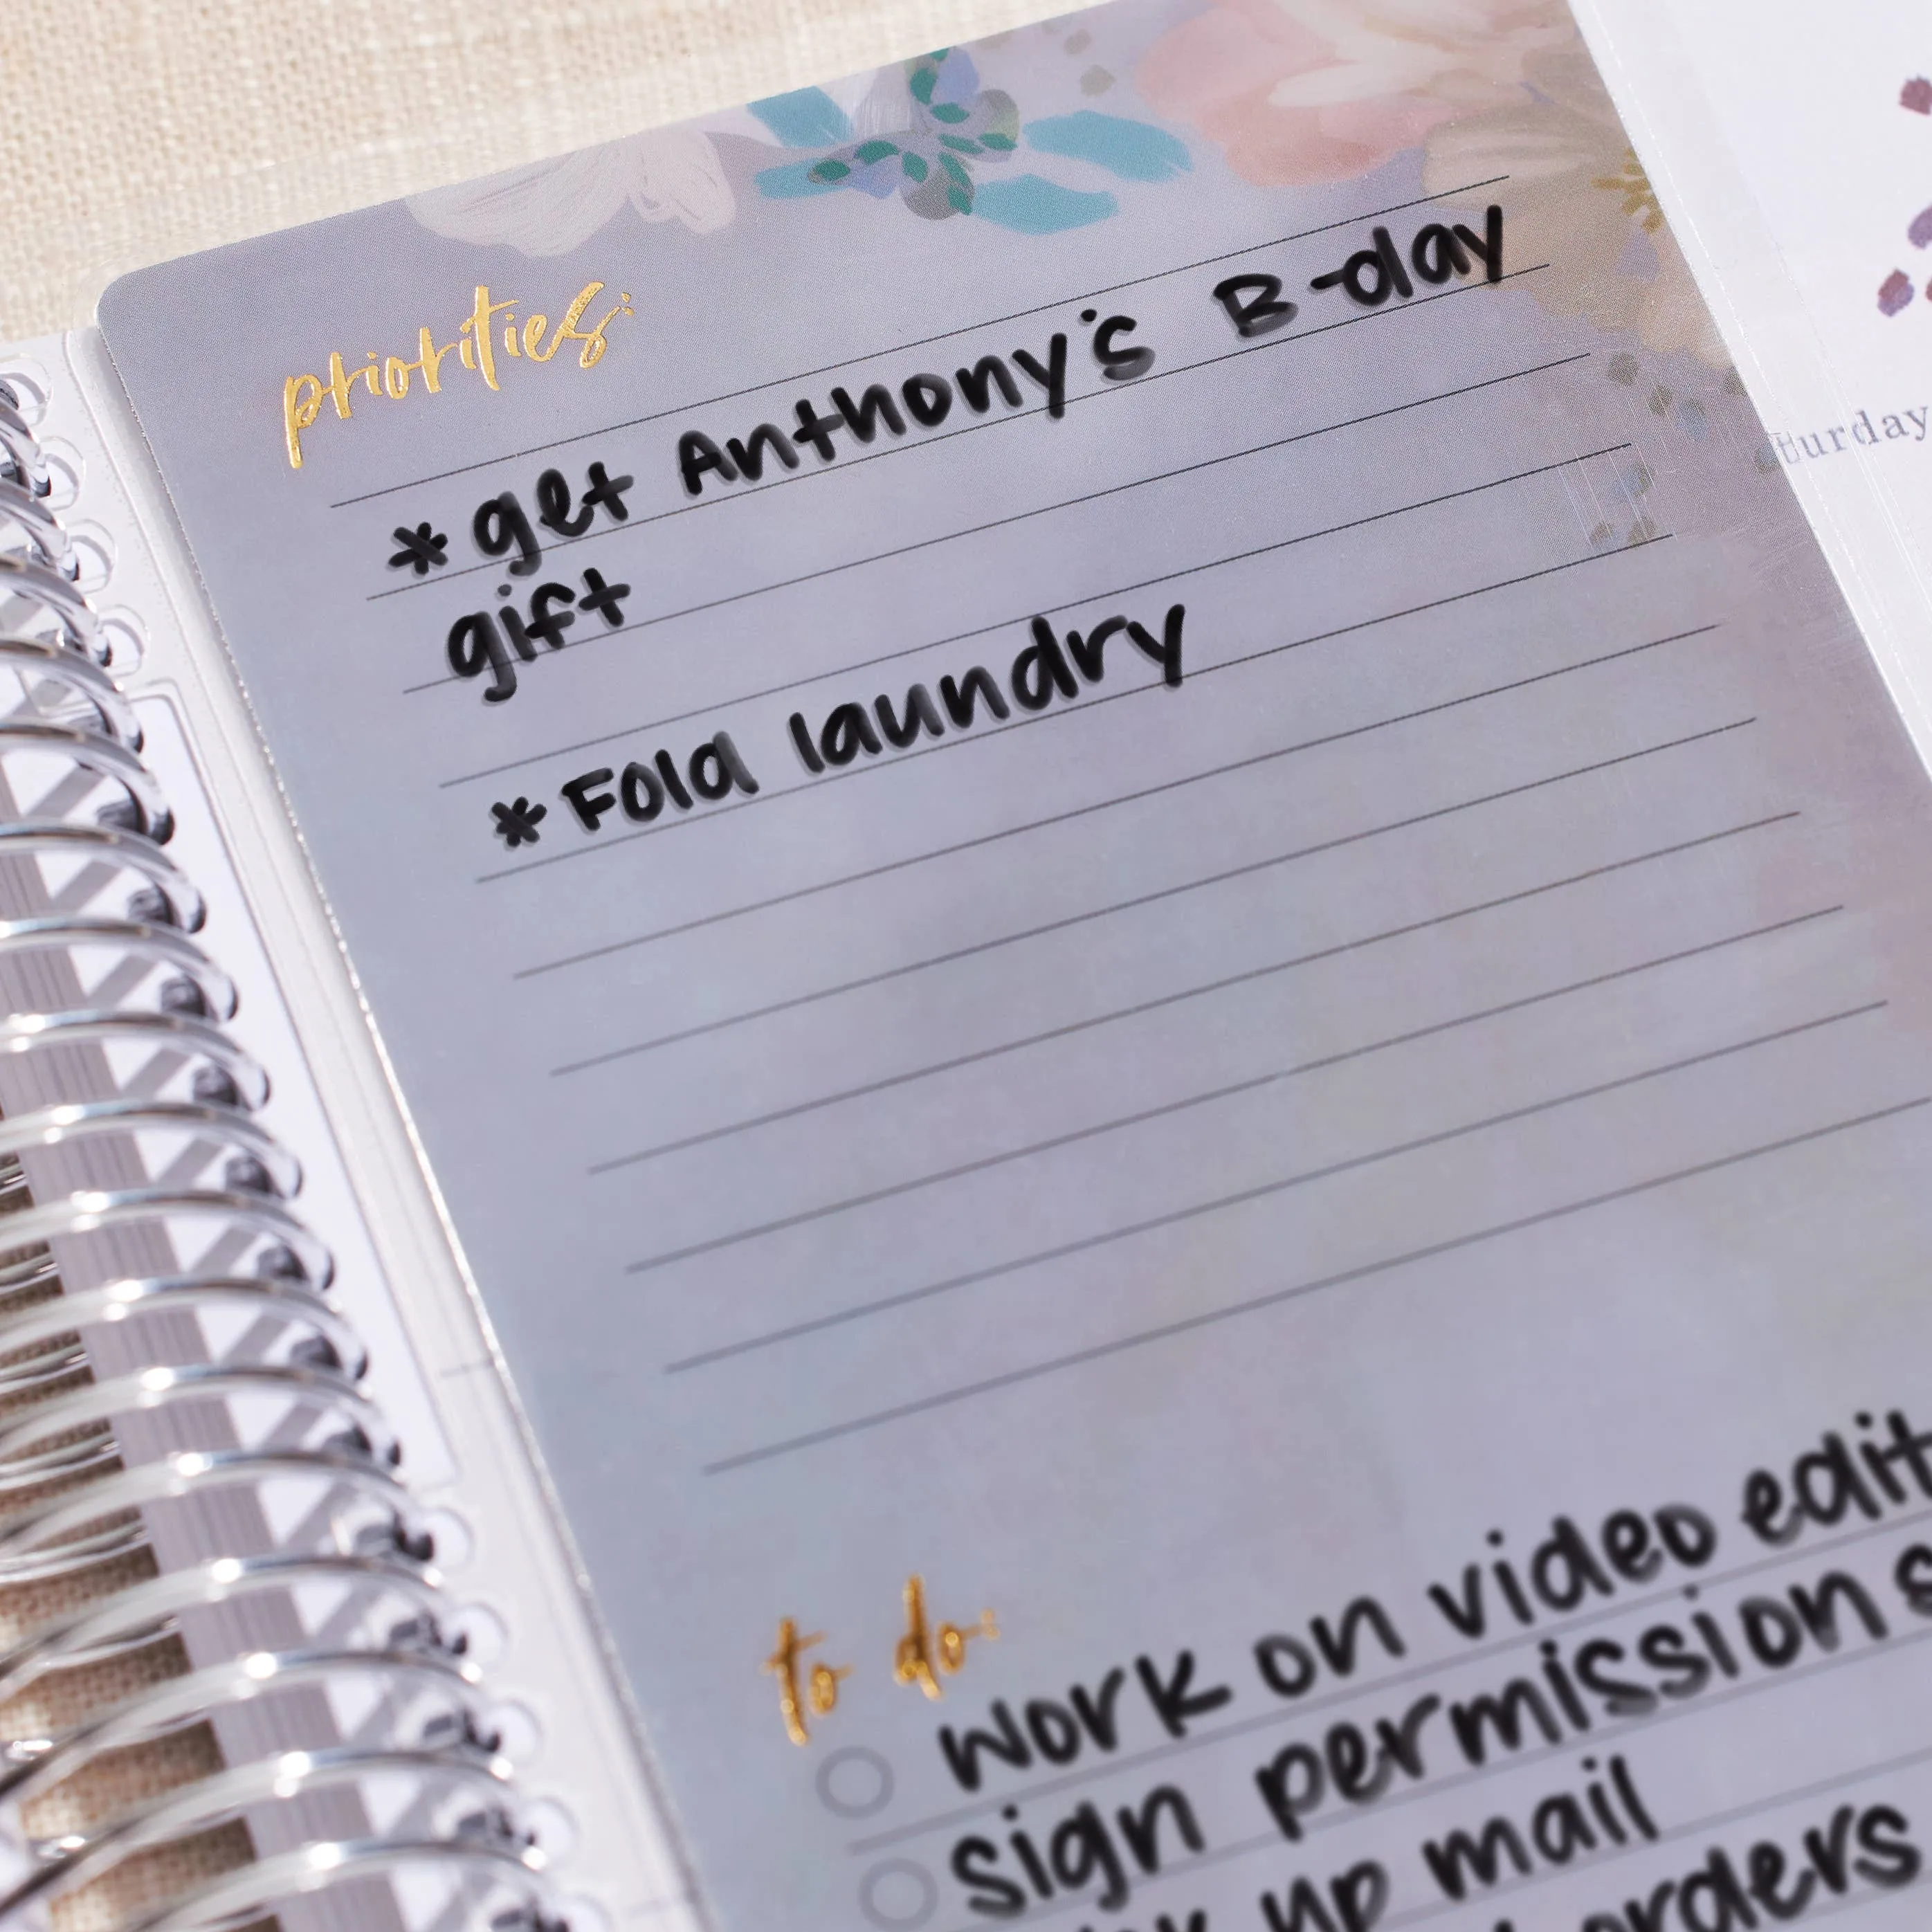 priorities:
*get Anthony's B-day
gift
*Fold laundry
turday
to do:
Work on video edit
sign permission s
up mail
orders